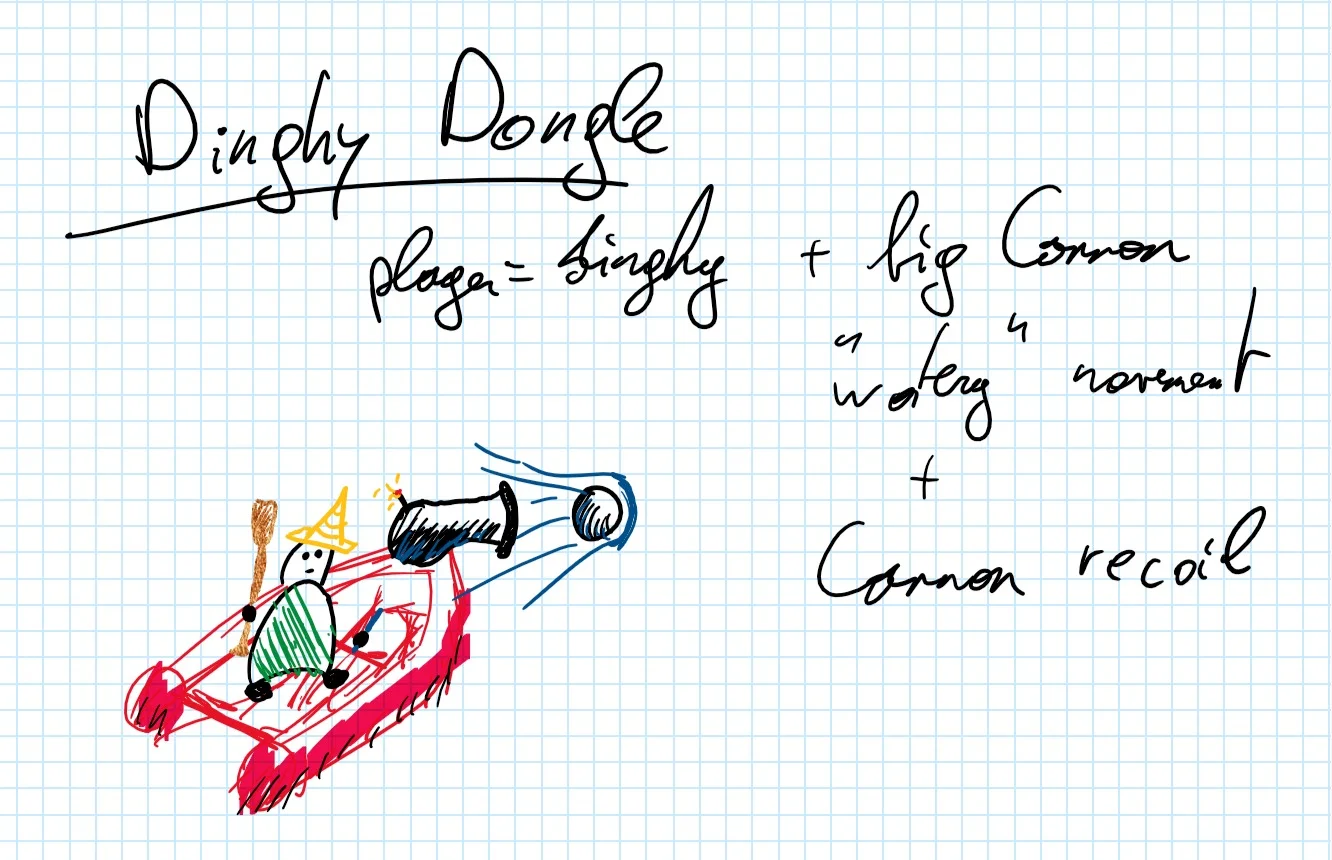 Dinghy Dongle
player = dinghy + big Cannon
"watery" movement
+
Cannon recoil